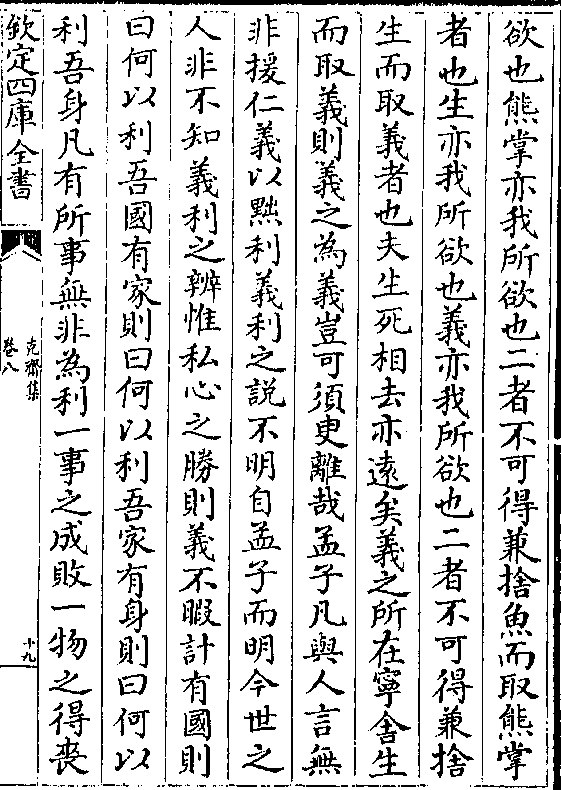 欲也熊掌亦我所欲也二者不可得兼捨魚而取熊掌
者也生亦我所欲也義亦我所欲也二者不可得兼捨
生而取義者也夫生死相去亦遠矣義之所在寧舍生
而取義則義之為義豈可須臾離哉孟子凡與人言無
非援仁義以黜利義利之説不明自孟子而明今世之
人非不知義利之辨惟私心之勝則義不暇計有國則
曰何以利吾國有家則曰何以利吾家有身則曰何以
利吾身凡有所事無非為利一事之成敗一物之得喪
欽定四庫全書
克齋集
卷八
十九